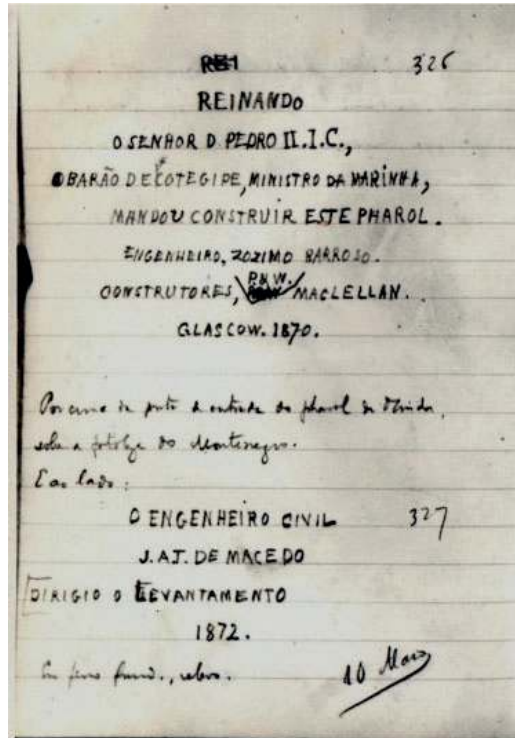 326
REINANDO
O SENHOR D. PEDRO II. I.C.,
O BARÃO DE COTEGIPE, MINISTRO DA MARINHA,
MANDOU CONSTRUIR ESTE PHAROL.
ENGENHEIRO, ZOZIMO BARROSO.
CONSTRUTORES, P. & W. MACLELLAN.
GLASCOW. 1870.
Por cima da porta d entrada do pharol de Olinda,
sobre a do Montenegro.
E ao lado:
O ENGENHEIRO CIVIL 327
J. A. J. DE MACEDO
DIRIGIO O LEVANTAMENTO
1872.
Em ferro fund., relevo.
10 Maio